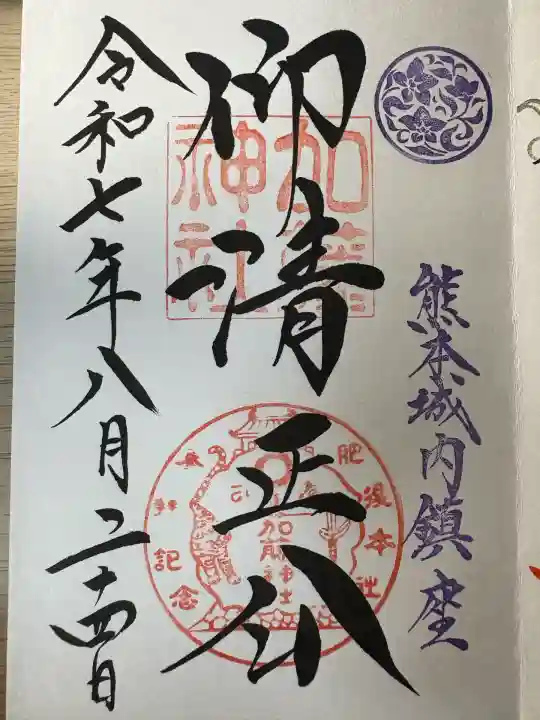 熊本城内鎮座
仰清正公
加藤神社
肥後本社
加藤神社
参拝記念
令和七年八月二十四日